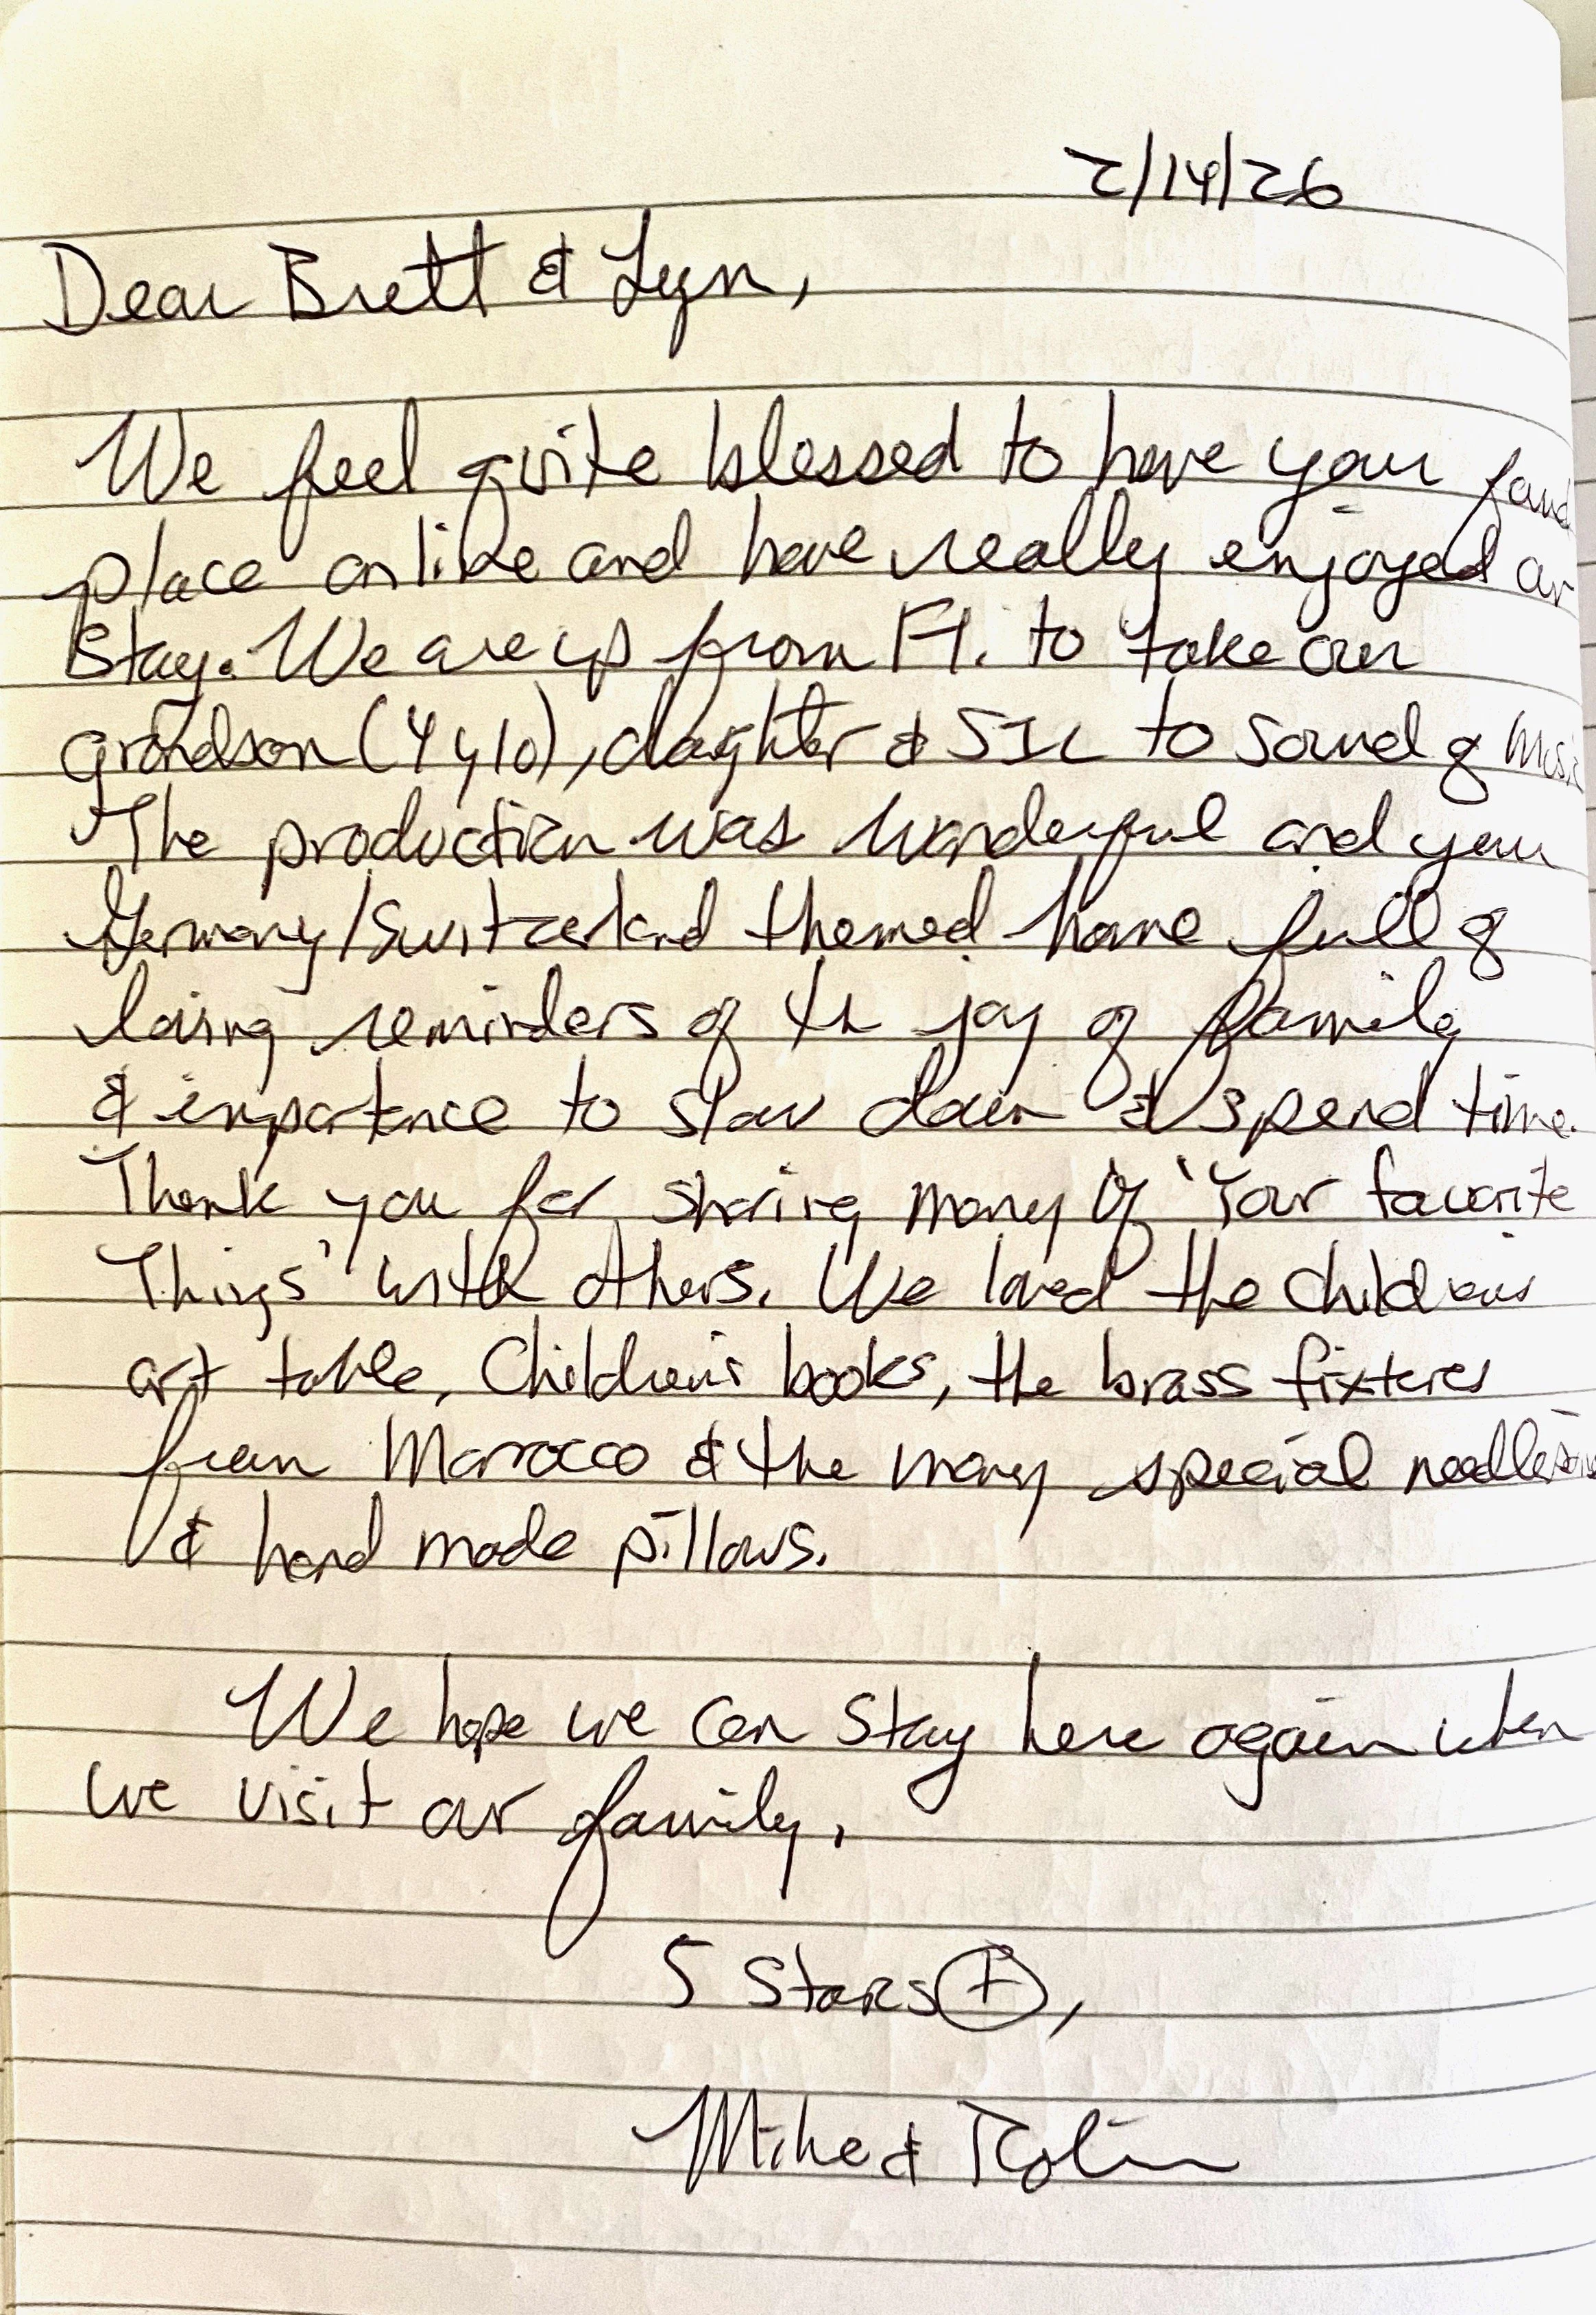 2/14/26
Dear Brett & Lyn,
We feel quite blessed to have your found
place online and have really enjoyed our
stay. We are up from Fl. to take our
grandson (4 y/o), daughter & SIL to Sound of Music
The production was wonderful and your
Germany/Switzerland themed home full of
loving reminders of the joy of family
& importance to slow down & spend time.
Thank you for sharing many of 'Your favorite
Things' with others. We loved the childrens
art table, Children's books, the brass fixtures
from Marocco & the many special
& hand made pillows.
We hope we can stay here again when
we visit our family.
5 Stars +,
Mike & Robin